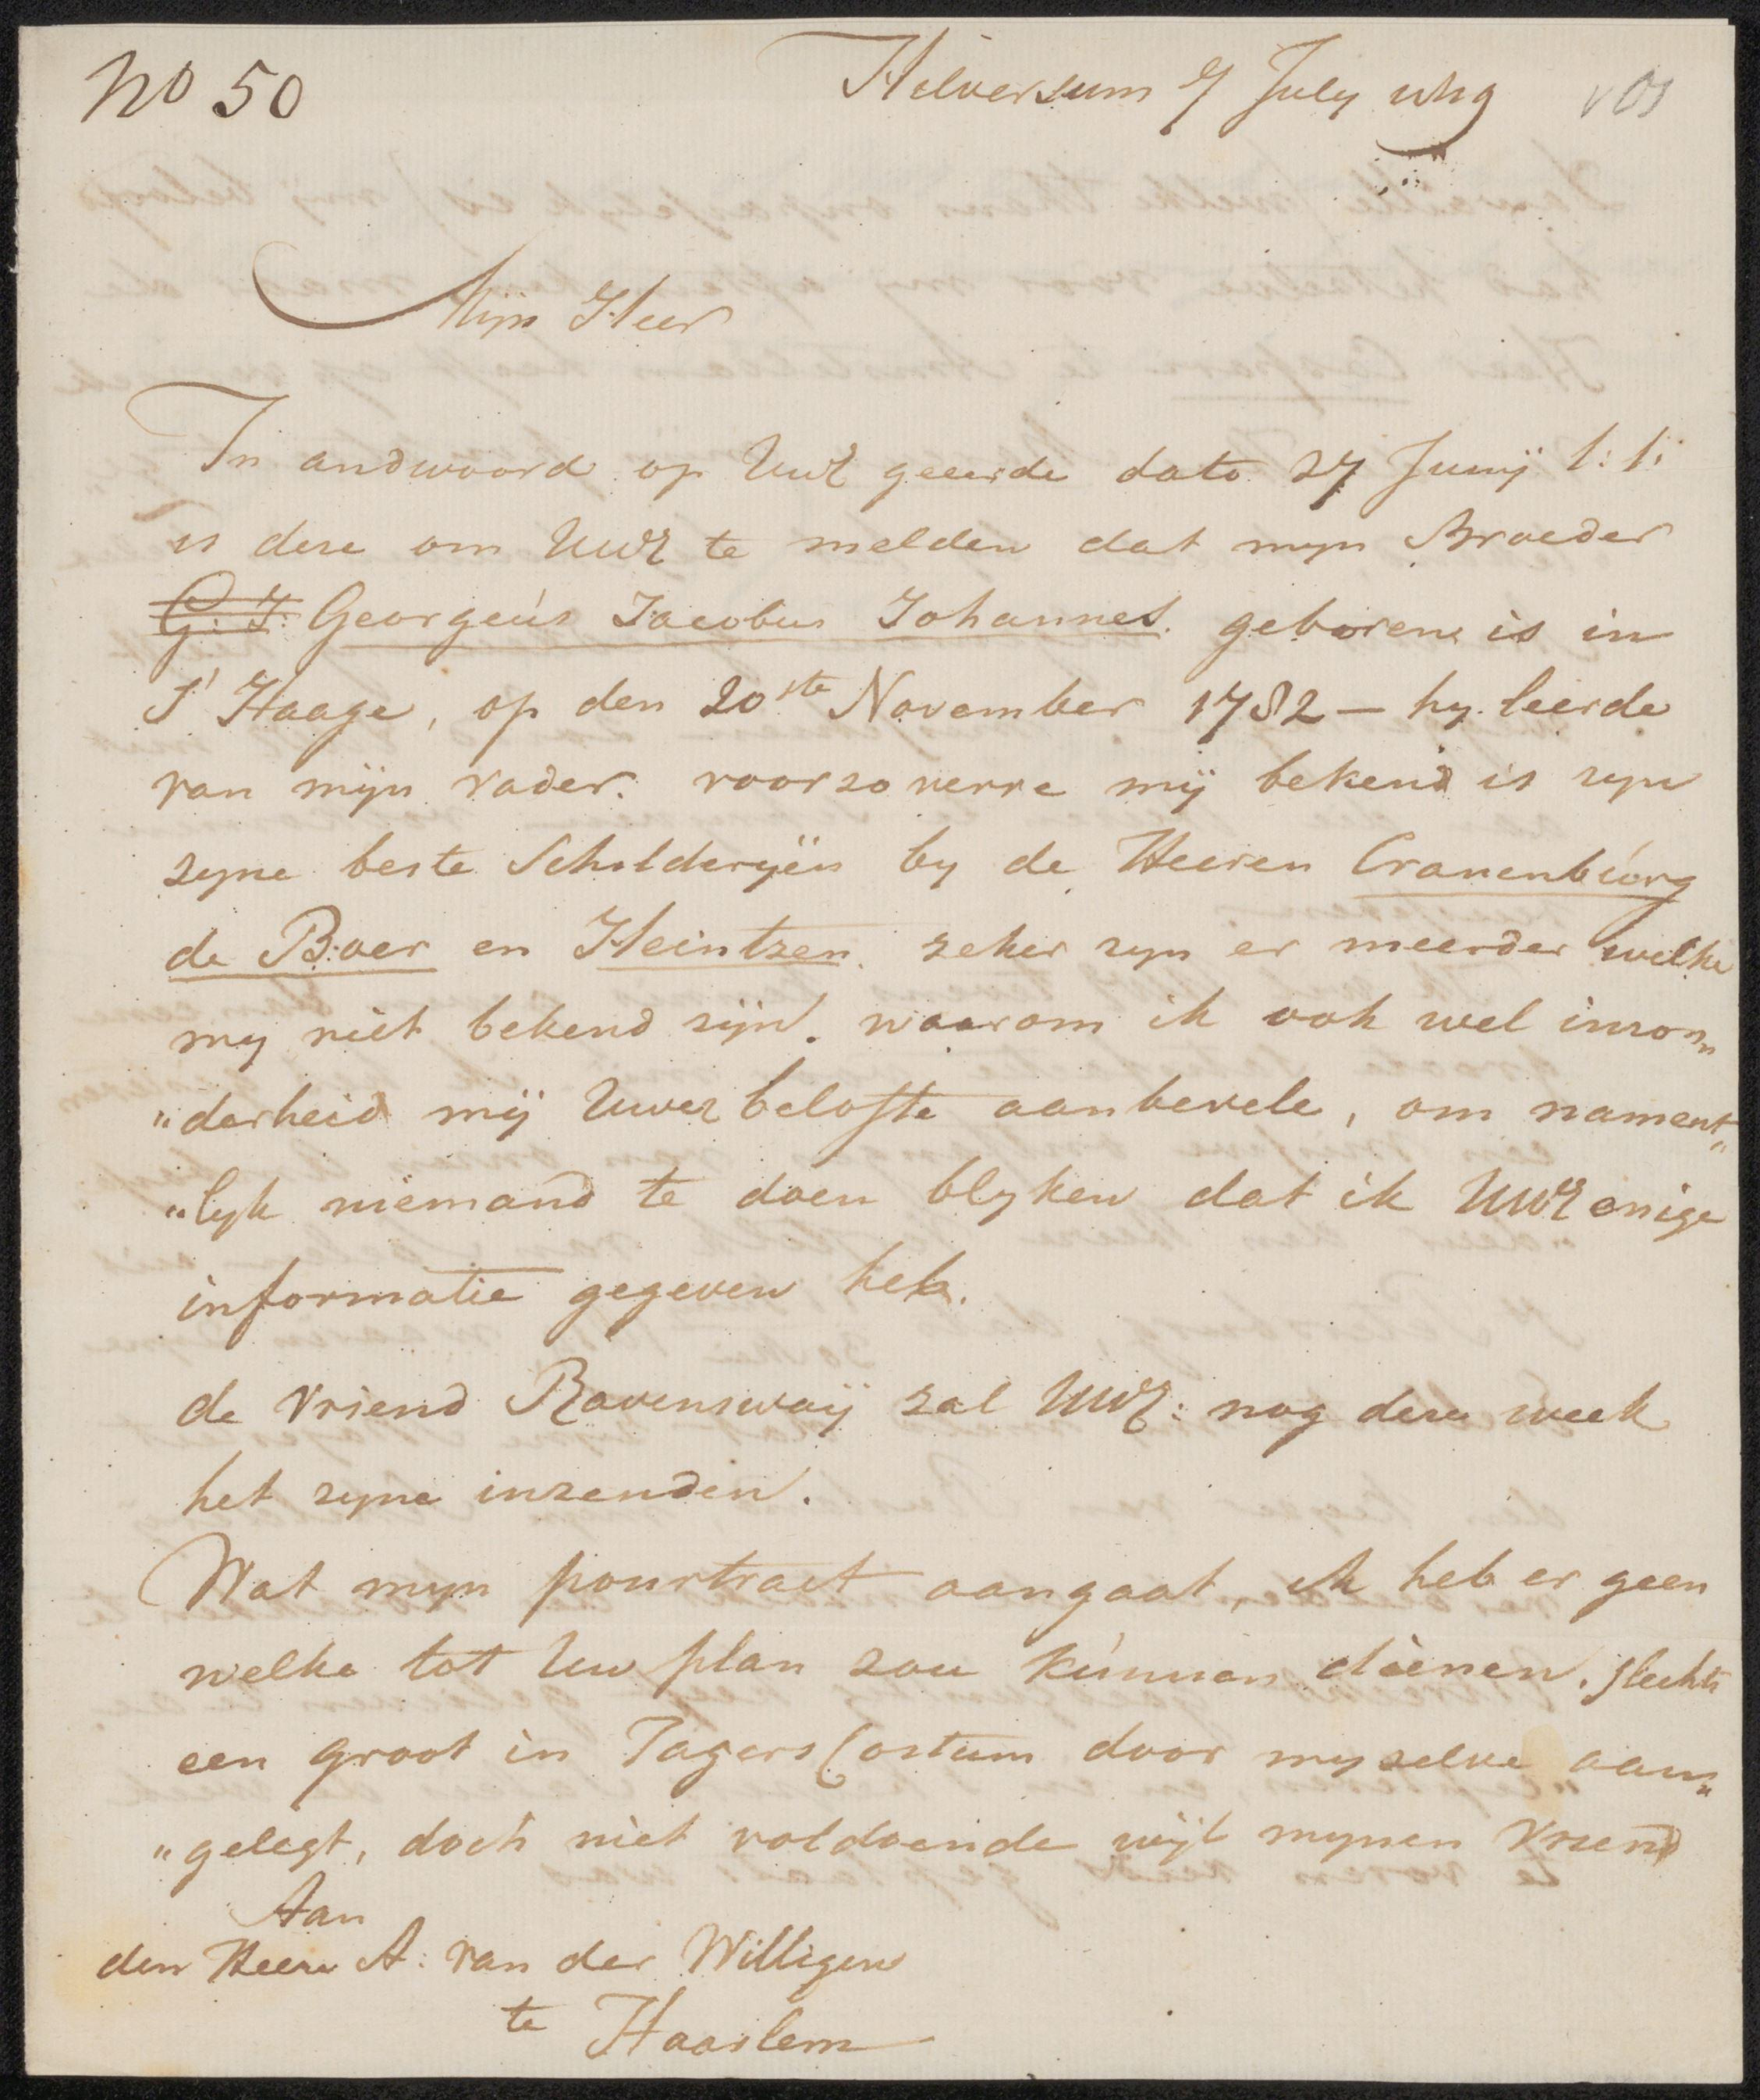 No 50
Hilversum 7 July
Mijn Heer
In andwoord op UwE geeerde dato 27 Junij l: l:
is dese om UwE te melden dat myn Broeder
G: J: Georgeús Jacobus Johannes. geboren is in
S' Haage, op den 20ste November 1782 – hy leerde
van mijn vader. voorzo verre mij bekend is zyn
zyne beste Schilderyën by de Heeren Cranenbúrg
de Boer en Heintzen. zeker zyn er meerder welke
my niet bekend zijn. waarom ik ook wel inzon„
„derheid mij UwerE belofte aanbevele, om nament„
„lyk niemand te doen blyken dat ik UwE enige
informatie gegeven heb.
de Vriend Ravenswaij zal UwE: nog dese week
het zyne inzenden.
Wat myn pourtract aangaat, ik heb er geen
welke tot Uw plan zou kúnnen dienen. slechts
een groot in Jagers Costum door myzelve aan„
„gelegt, doch niet voldoende wijl mynen Vriend
Aan
den Heere A: van der Willigen
te Haarlem